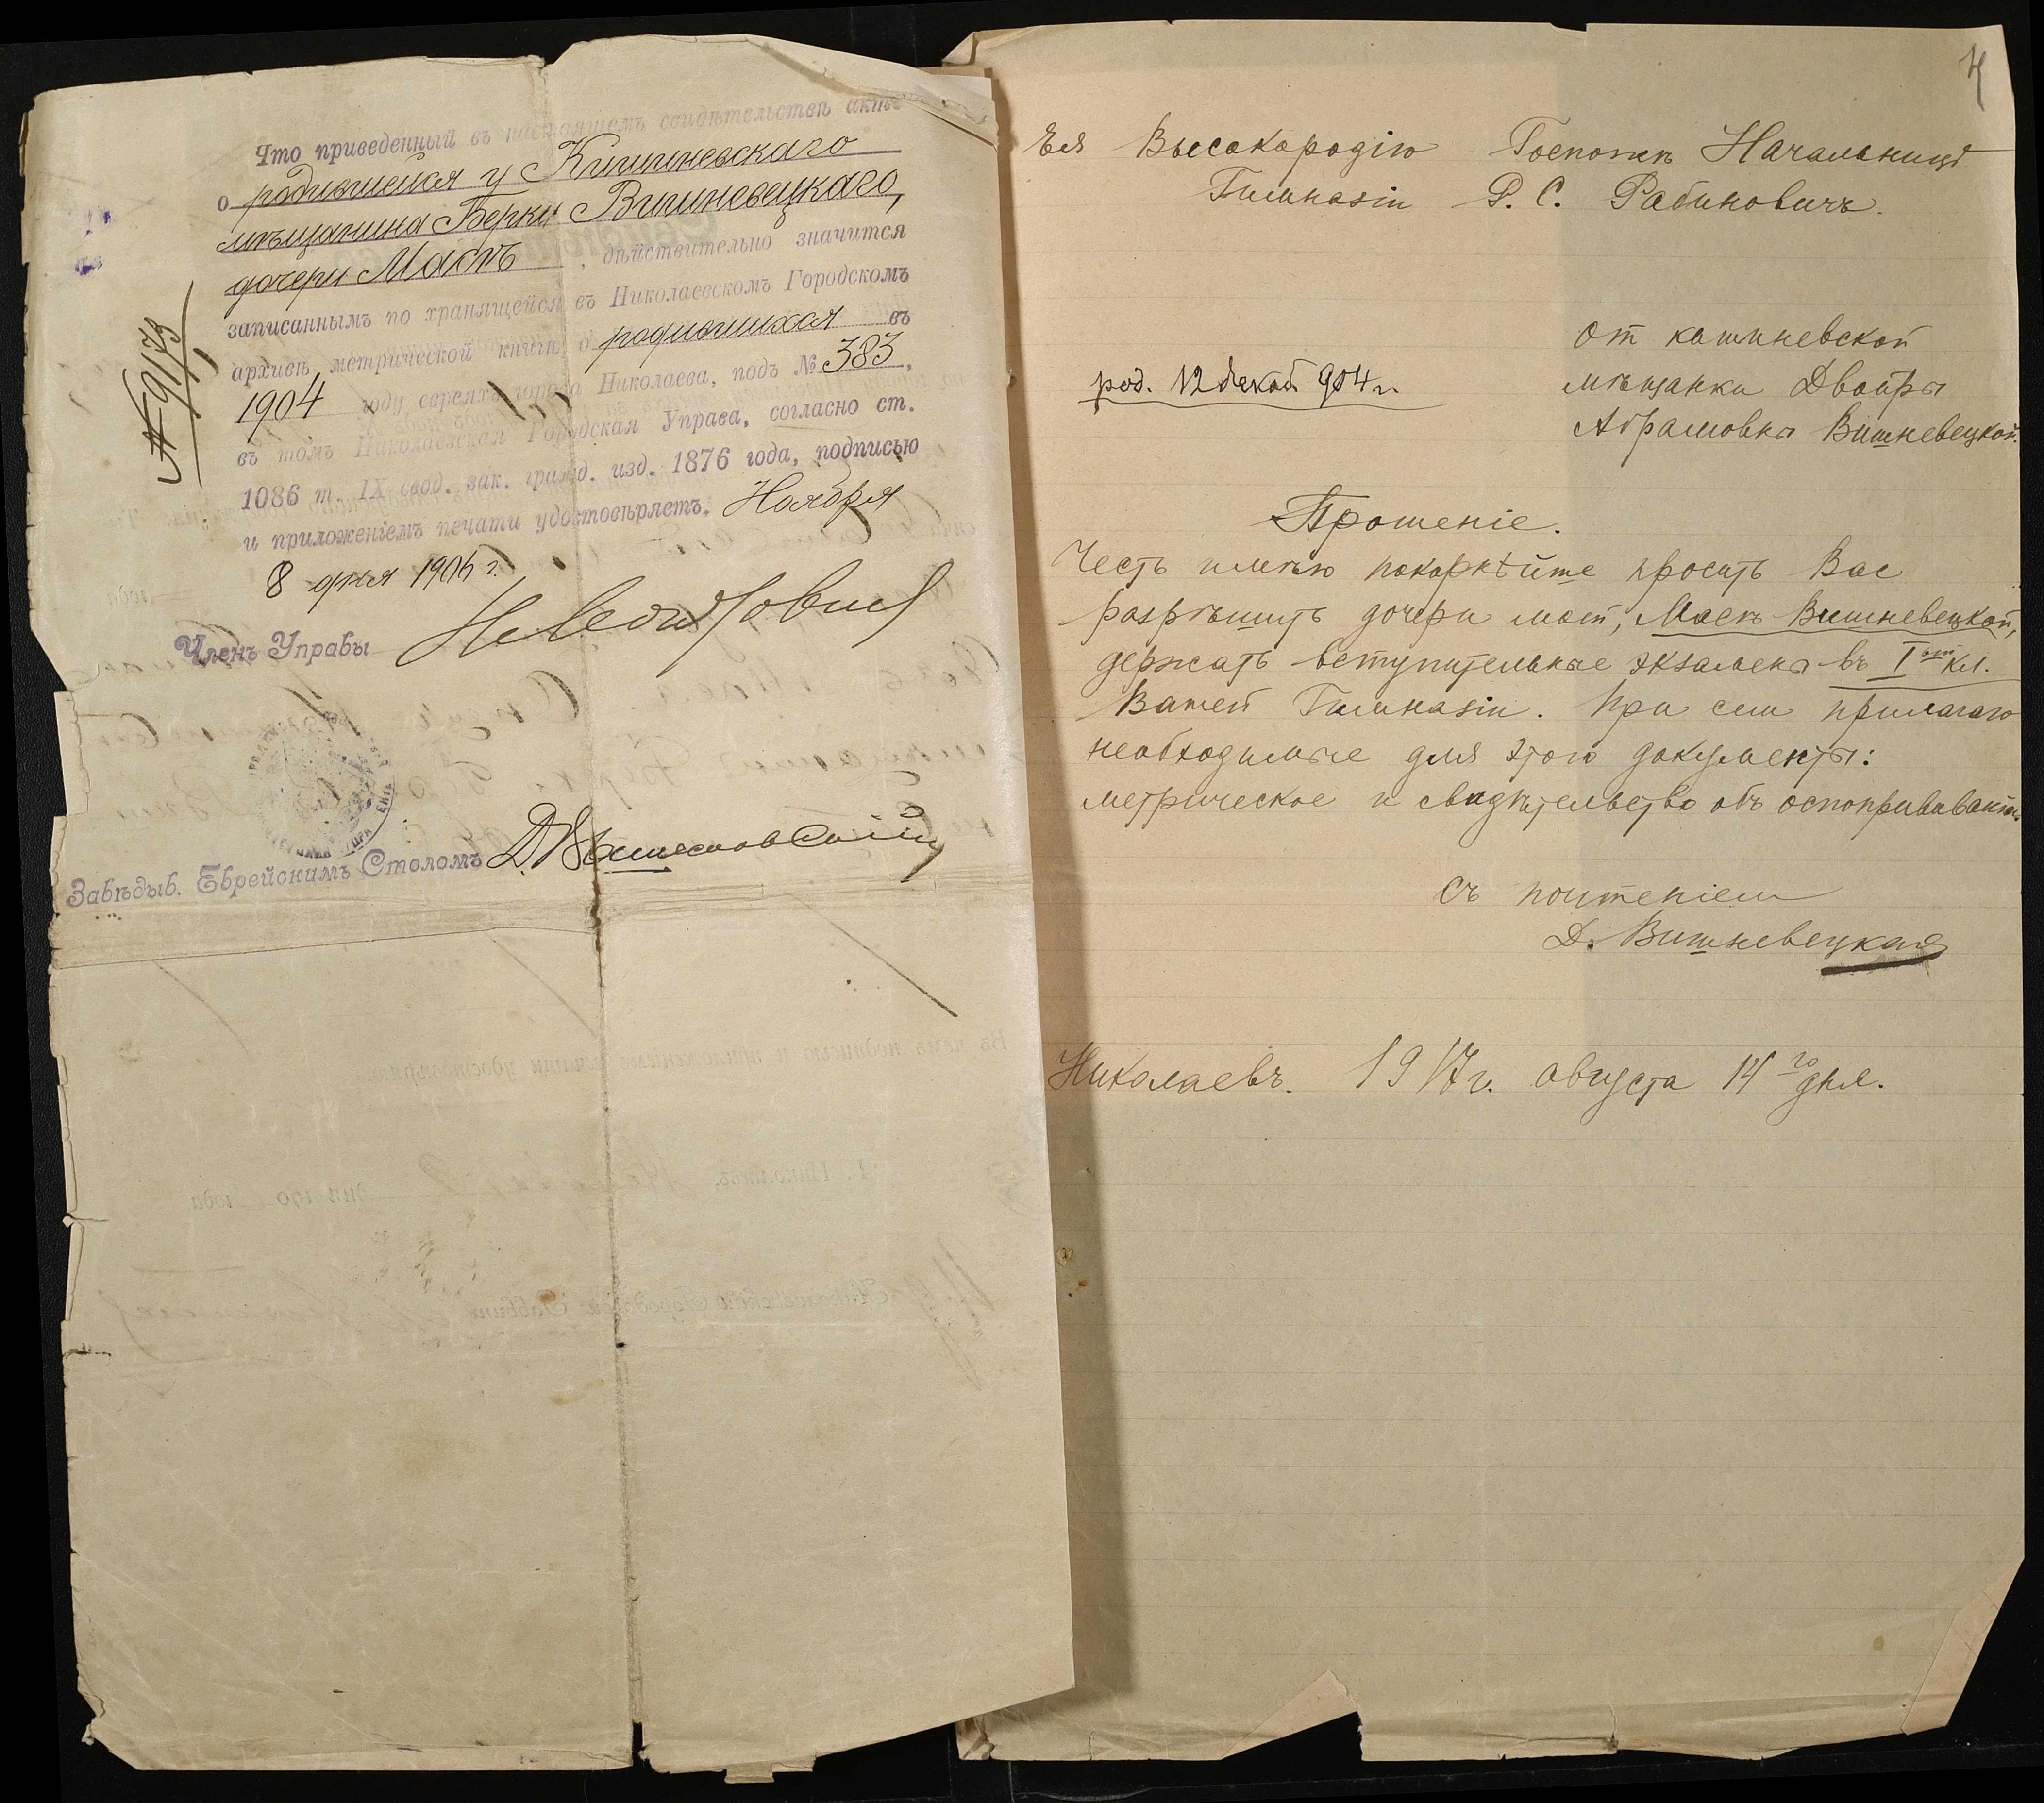 Что приведенный въ настоящемъ свидѣтельствѣ актъ
о родившейся у Кишиневскаго
мѣщанина Берки Вишневецкаго,
дочери Маѣ, дѣйствительно значится
записаннымъ по хранящейся въ Николаевскомъ Городскомъ
архивѣ метрической книги о родившихся въ
1904 году евреяхъ города Николаева, подъ № 383,
въ томъ Николаевская Городская Управа, согласно ст.
1086 т. IX свод. зак. гражд. изд. 1876 года, подписью
и приложеніемъ печати удостовѣряетъ. Ноября
8 дня 1906 г.
№ 9173
Членъ Управы
Завѣдыв. Еврейскимъ Столомъ
4
Ея Высокородію Госпожѣ Начальницѣ
Гимназіи Р. С. Рабиновичъ.
от кишиневской
мѣщанки Двойры
Абрамовны Вишневецкой.
род. 12 декаб 904 г.
Прошеніе.
Честь имѣю покорнѣйше просить Вас
разрѣшить дочери моей, Маѣ Вишневецкой,
держать вступительные экзамены въ I ый кл.
Вашей Гимназіи. При сем прилагаю
необходимые для этого документы:
метрическое и свидѣтельство объ оспопрививаніи.
Съ почтеніем
Д. Вишневецкая
Николаевъ. 1917 г. августа 14 го дня.